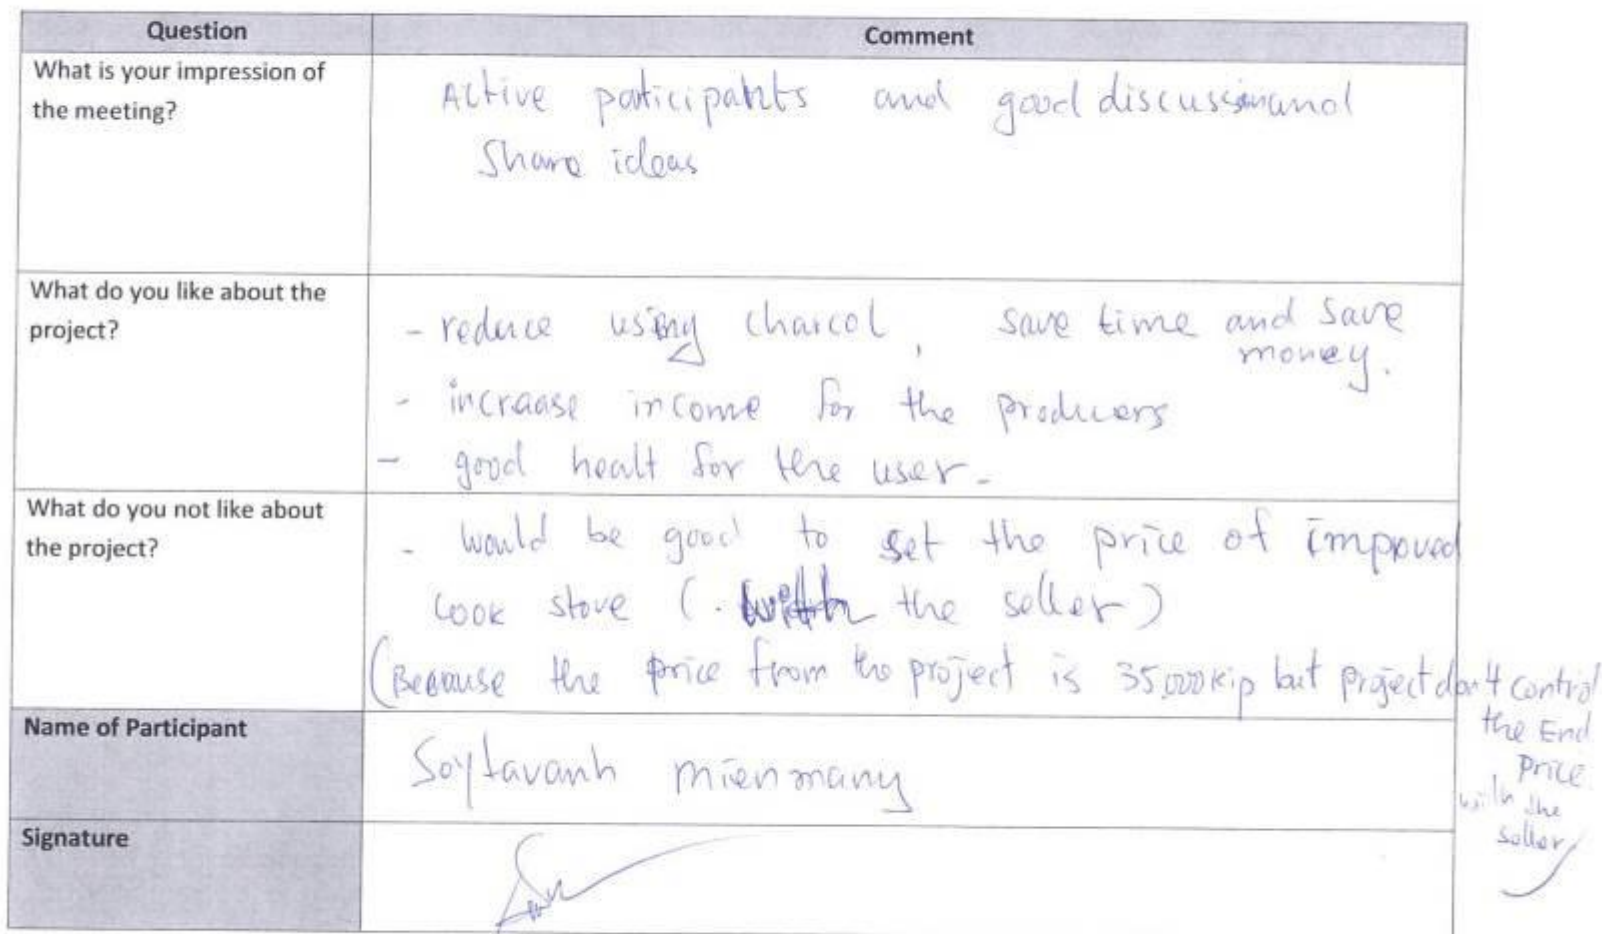 Question Comment
What is your impression of
the meeting?
Active participahts and good discussionand
Share ideas
What do you like about the
project?
- reduce using charcol, save time and save
money.
- incraase income for the producers
- good healt for the user-
What do you not like about
the project?
- would be good to set the price of impoved
cook stove (. with the seller)
(Because the price from the project is 35,000 kip but project don't control
the End
price
with the
seller)
Name of Participant
Soytavanh mienmany
Signature